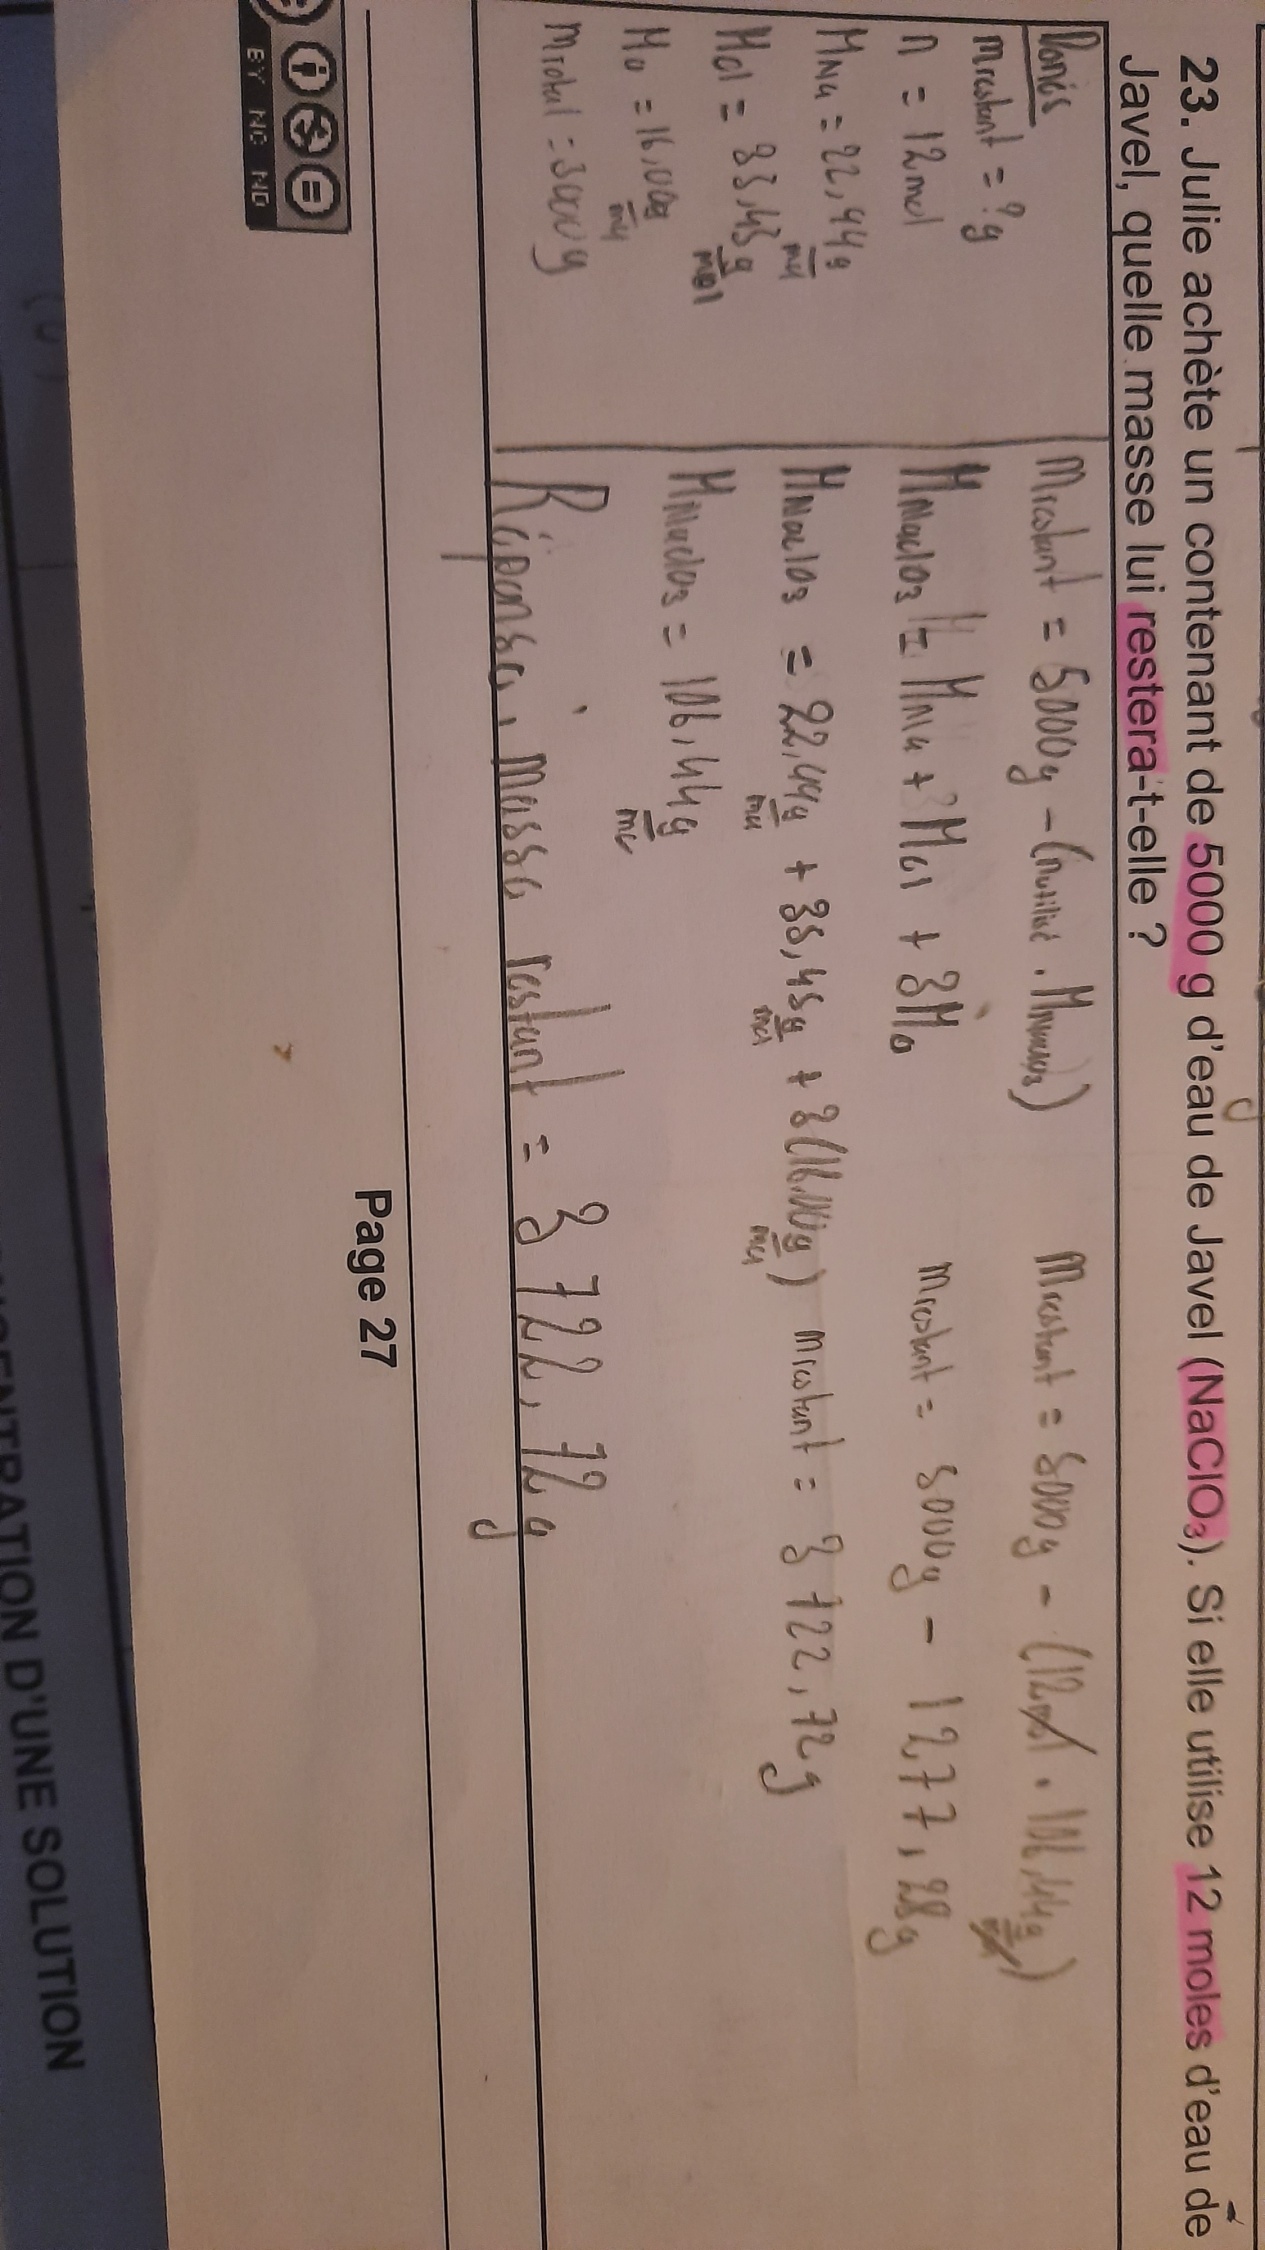 23. Julie achète un contenant de 5000 g d'eau de Javel (NaClO₃). Si elle utilise 12 moles d'eau de
Javel, quelle masse lui restera-t-elle ?
mrestant = ?g
n = 12mol
MNa = 22,99 g/mol
MCl = 35,45 g/mol
MO = 16,00 g/mol
mtotal = 5000g
mrestant = 5000g - (nutilisé . MNaClO3)
MNaClO3 = MNa + MCl + 3MO
MNaClO3 = 22,99 g/mol + 35,45 g/mol + 3(16,00 g/mol)
MNaClO3 = 106,44 g/mol
mrestant = 5000g - (12mol . 106,44 g/mol)
mrestant = 5000g - 1277,28g
mrestant = 3 722,72g
Réponse: masse restant = 3 722,72g
BY NC ND
Page 27
D'UNE SOLUTION